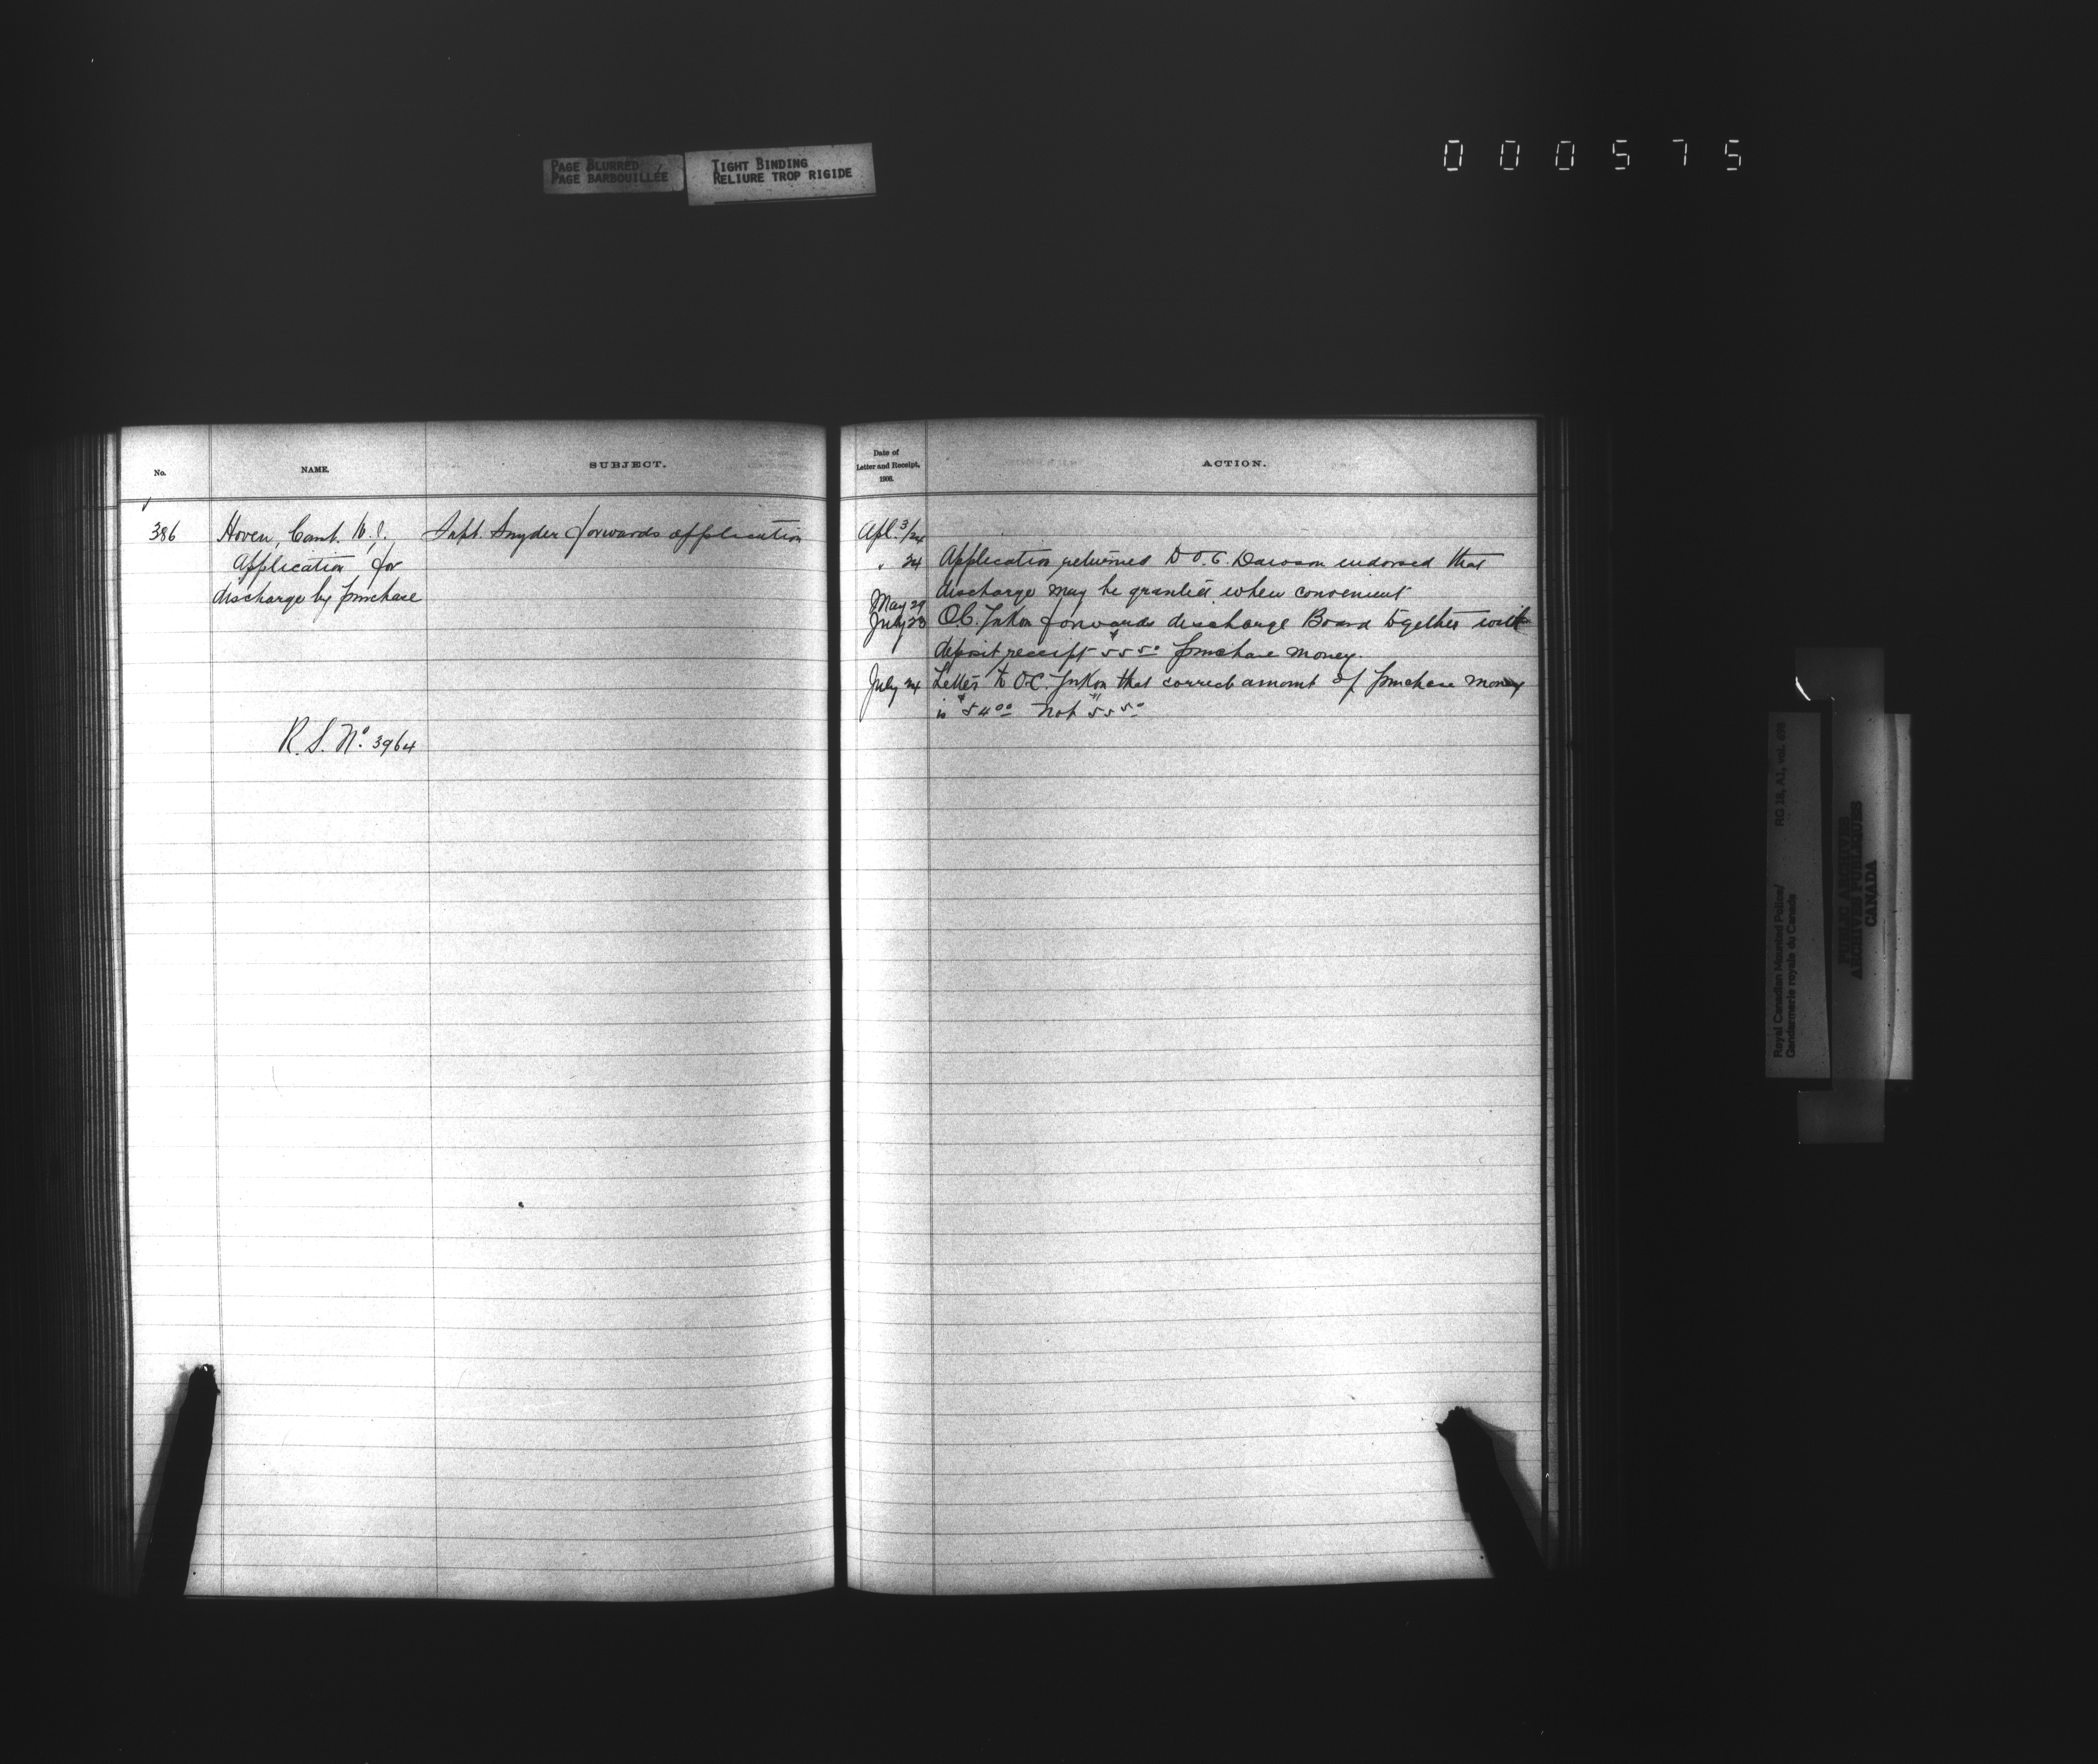 PAGE BLURRED
PAGE BARBOUILLÉE
TIGHT BINDING
RELIURE TROP RIGIDE
000575
No.
NAME.
SUBJECT.
Date of
Letter and Receipt,
1908.
ACTION.
386
Hoven, Const. W.
Application for
discharge by purchase
R. S. No. 3964
Supt. Snyder forwards application
Apl. 3/24
" 24 Application returned to O.C. Dawson endorsed that
discharge may be granted when convenient
May 29
July 23 O.C. Yukon forwards discharge Board together with
deposit receipt $55 50 purchase money.
July 24 Letter to O.C. Yukon that correct amount of purchase money
is $54 00 not $55 50
Royal Canadian Mounted Police/
Gendarmerie royale du Canada
RG 18, A1, vol.
PUBLIC ARCHIVES
ARCHIVES PUBLIQUES
CANADA